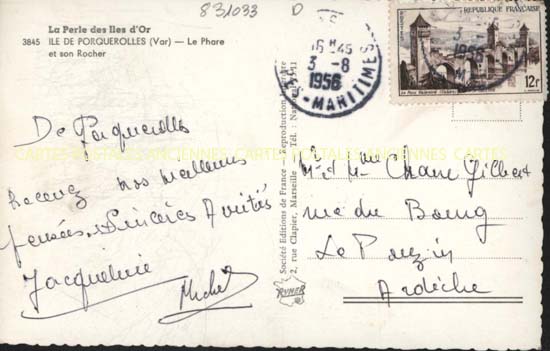 831033 D
La Perle des Iles d'Or
3845 ILE DE PORQUEROLLES (Var) — Le Phare
et son Rocher
De Porquerolles
Recevez nos meilleures
pensées. Sincères Amitiés
Jacqueline
Michel
Société Editions de France - Reproduction
2, rue Clapier, Marseille - Tél. Na
RYNER
16 H 45
3 - 8
1956
MARITIMES
REPUBLIQUE FRANÇAISE
12f
Mr et Mme Chave Gilbert
rue du Bourg
Le Pouzin
Ardèche
CARTES POSTALES ANCIENNES CARTES POSTALES ANCIENNES CARTES